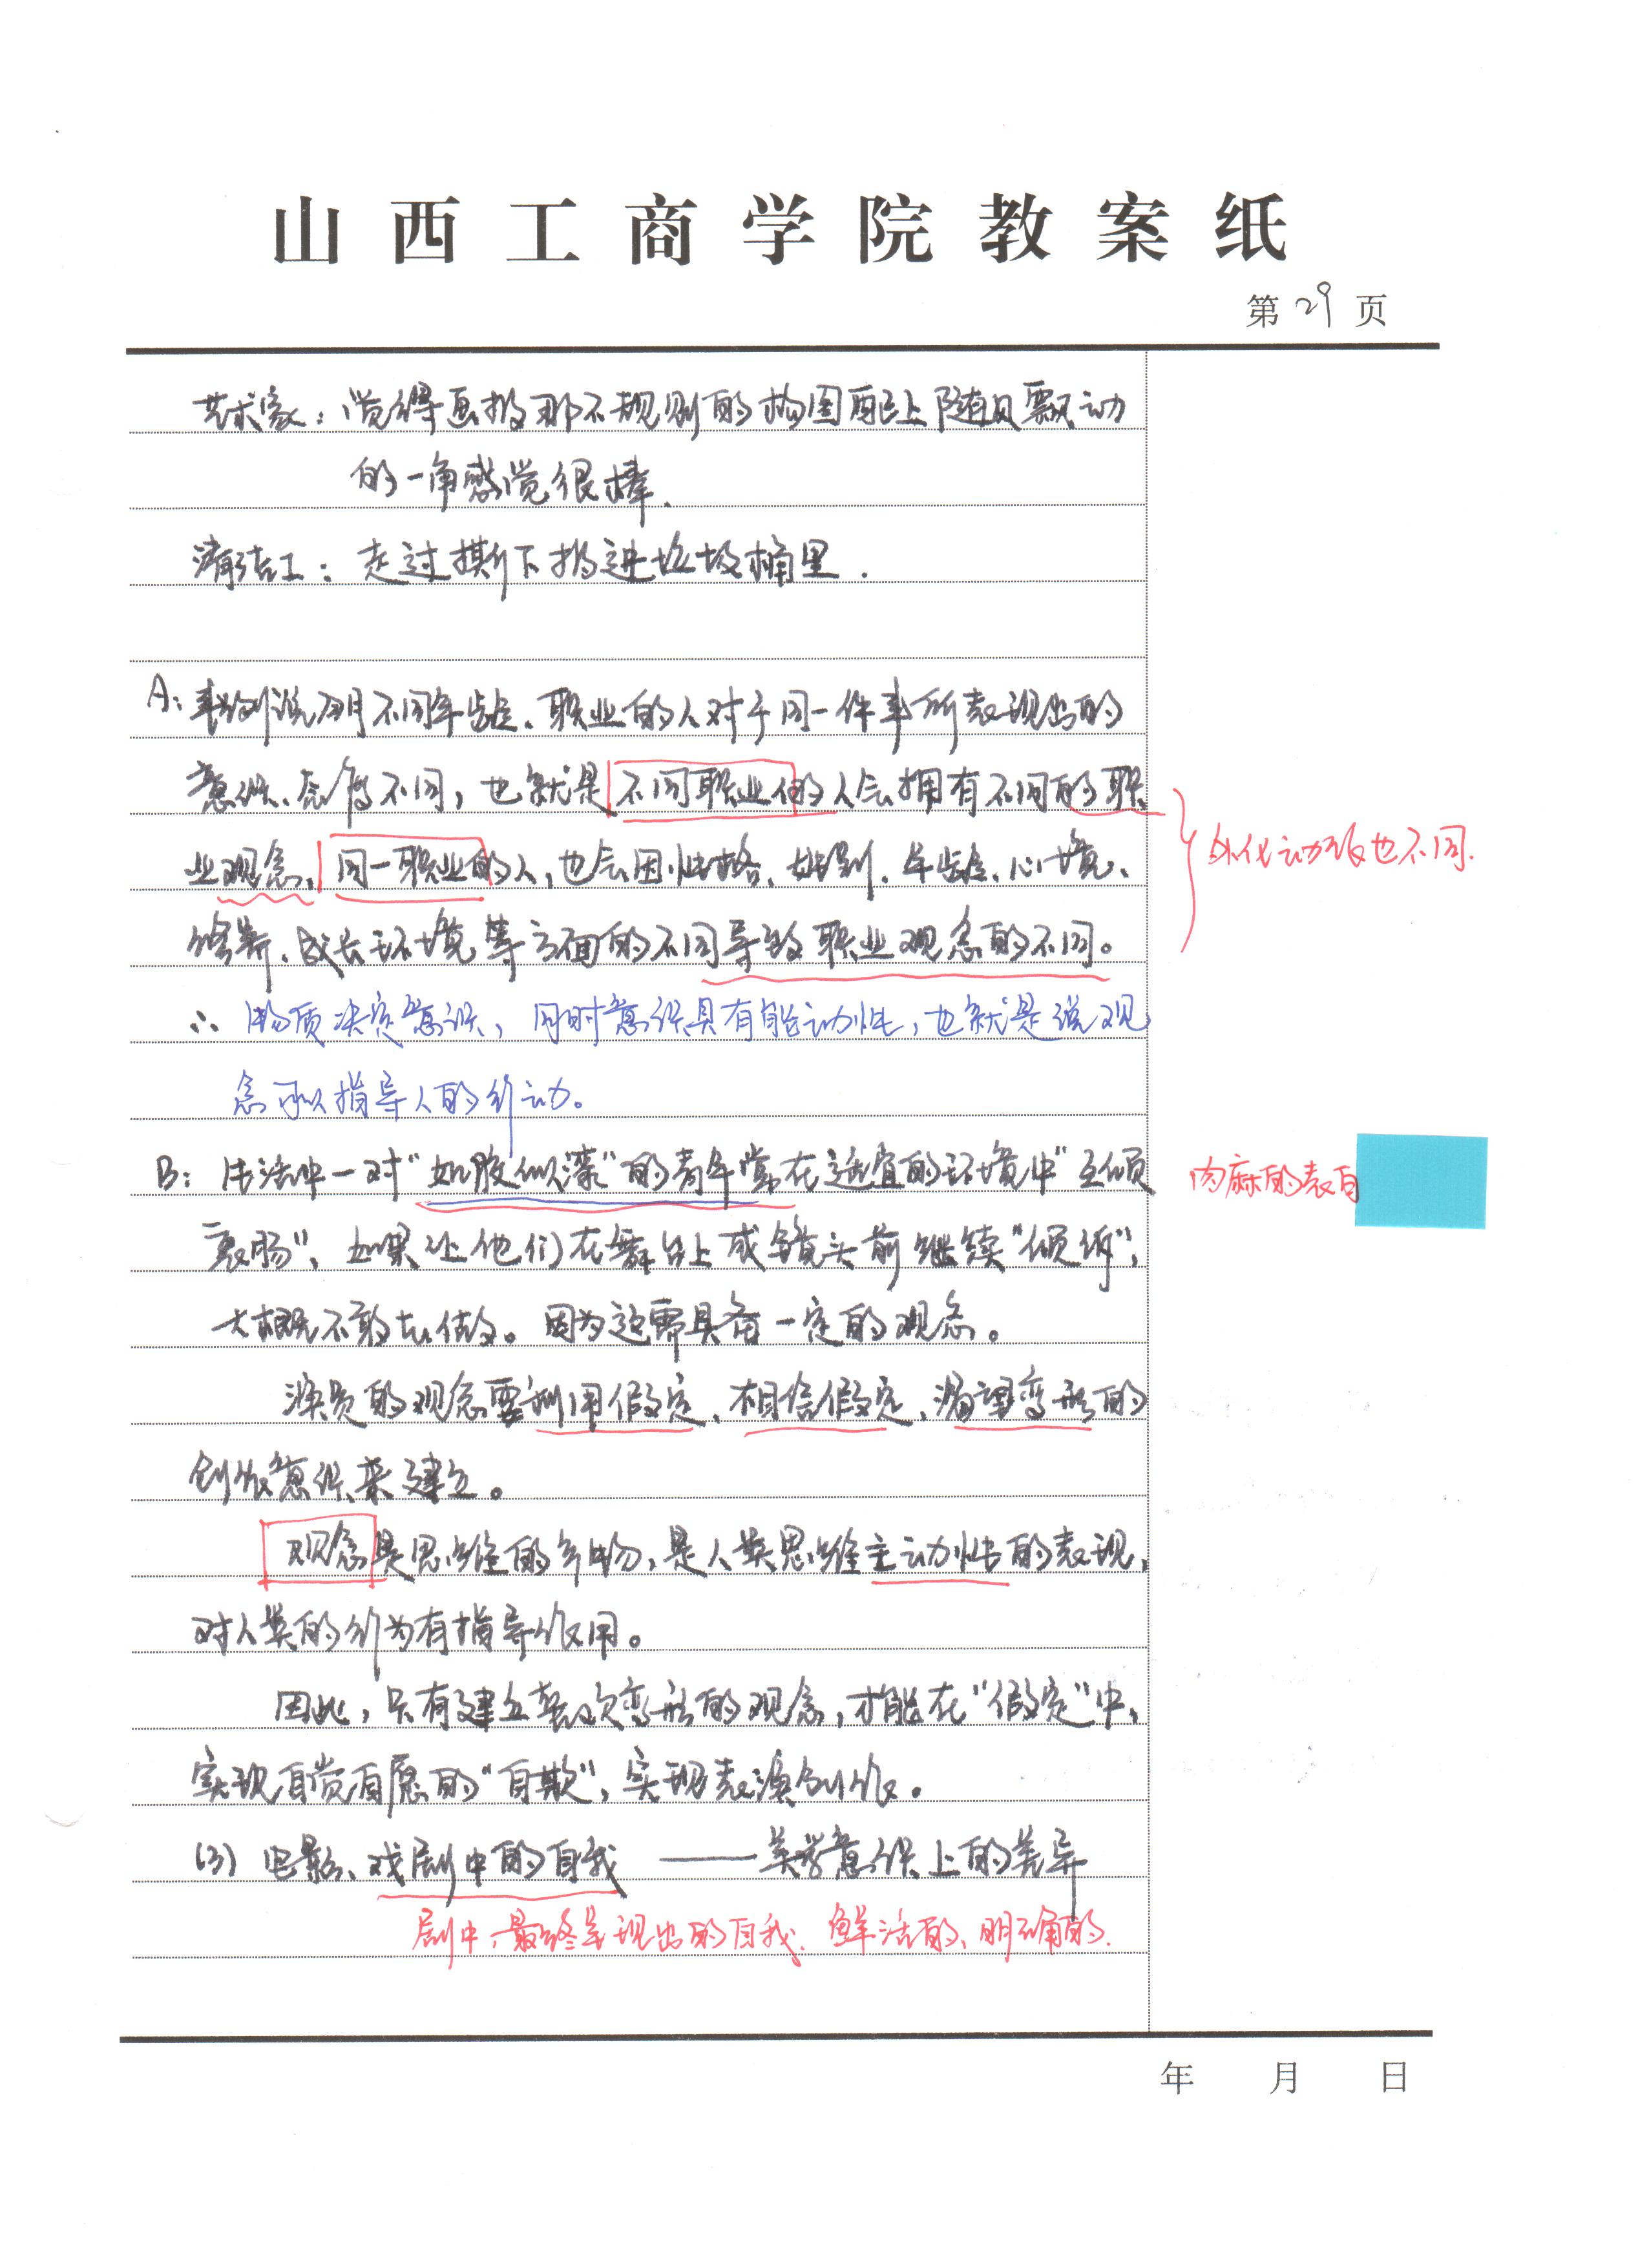 山西工商学院教案纸
第29页
艺术家：觉得画报那不规则的构图配上随风飘动
的一角感觉很棒.
清洁工：走过撕下扔进垃圾桶里.
A：事例说明不同年龄、职业的人对于同一件事所表现出的
意识、态度不同，也就是不同职业的人会拥有不同的职
业观念，同一职业的人，也会因性格、性别、年龄、心境、
成长环境等方面的不同导致职业观念的不同。
外化动作也不同.
∴物质决定意识，同时意识具有能动性，也就是说观
念可以指导人的行动。
B：生活中一对“如胶似漆”的青年常在适宜的环境中“互倾
衷肠”，如果让他们在舞台上或镜头前继续“倾诉”，
肉麻的表白
大概不敢去做。因为这需具备一定的观念。
演员的观念要利用假定、相信假定、渴望变形的
创作意识来建立。
观念是思维的产物，是人类思维主动性的表现，
对人类的行为有指导作用。
因此，只有建立其次变形的观念，才能在“假定”中，
实现自觉自愿的“自欺”，实现表演创作。
(3) 电影、戏剧中的自我 —— 美学意识上的差异
剧中，最终呈现出的自我、鲜活的、明确的.
年 月 日